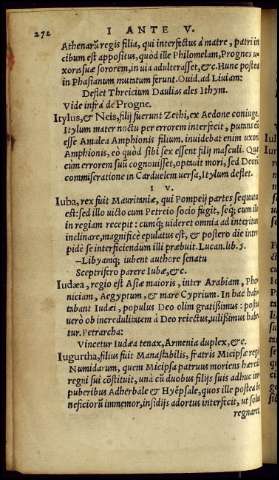 272 I ANTE V.
Athenarũ regis filia, qui interfectus à matre, patri in
cibum est appositus, quòd ille Philomelam, Prognes u-
xoris suæ sororem, in uia adulterasset, &c. Hunc poëtæ
in Phasianum mutatum ferunt. Ouid. ad Liuiam:
Deflet Threicium Daulias ales Ithym.
Vide infrà de Progne.
Itylus, & Neis, filij fuerunt Zethi, ex Aedone coniuge.
Itylum mater noctu per errorem interfecit, putans
esse Amalea Amphionis filium. inuidebat enim uxori
Amphionis, eò quòd sibi sex essent filij masculi. Quæ
cùm errorem suũ cognouisset, optauit mori, sed Deorũ
commiseratione in Carduelem uersa, Itylum deflet.
I V.
Iuba, rex fuit Mauritaniæ, qui Pompeij partes sequutus
est: sed illo uicto cum Petreio socio fugit, seq; cum illo
in regiam recepit: cumq; uideret omnia ad interitum
inclinare, magnificè epulatus est, & postero die intre-
pidè se interficiendum illi præbuit. Lucan. lib. 5.
—Libyamq; iubent authore senatu
Sceptrifero parere Iubæ, &c.
Iudæa, regio est Asiæ maioris, inter Arabiam, Phœ
niciam, Aegyptum, & mare Cyprium. In hac habi-
tabant Iudæi, populus Deo olim gratissimus: postea
uerò ob incredulitatem à Deo reiectus, uilissimus habe-
tur. Petrarcha:
Vincetur Iudæa tenax, Armenia duplex, &c.
Iugurtha, filius fuit Manastabilis, fratris Micipsæ regis
Numidarum, quem Micipsa patruus moriens hæredẽ
regni sui cõstituit, unà cũ duobus filijs suis adhuc im-
puberibus Adherbale & Hyẽpsale, quos ille postea be
neficiorũ immemor, insidijs adortus interfecit, ut solus
regnaret